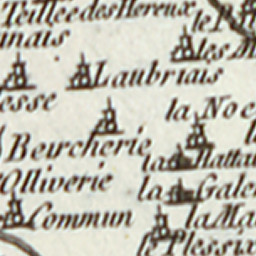 Teillee des Hereux
le P
inais
les M
Laubriais
esse
la Noe
Beurcherie
la Hattai
Olliverie
la Gale
Commun
la Ma
le Plessix